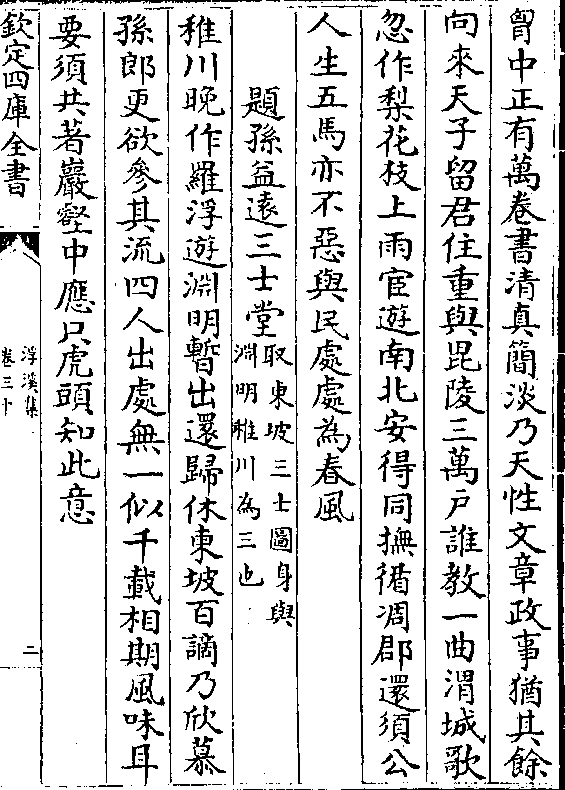 胷中正有萬卷書清真簡淡乃天性文章政事猶其餘
向來天子留君住重與毘陵三萬户誰教一曲渭城歌
忽作梨花枝上雨宦遊南北安得同撫循凋郡還須公
人生五馬亦不惡與民處處為春風
題孫益遠三士堂取東坡三士圖身與
淵明稚川為三也
稚川晚作羅浮遊淵明暫出還歸休東坡百謫乃欣慕
孫郎更欲參其流四人出處無一似千載相期風味耳
要須共著巖壑中應只虎頭知此意
欽定四庫全書
浮溪集
卷三十
二